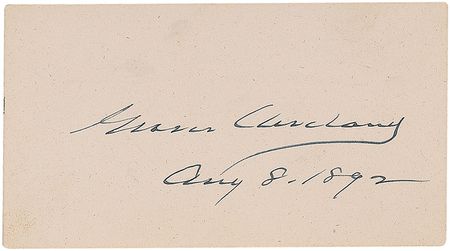 Grover Cleveland
Aug 8. 1892